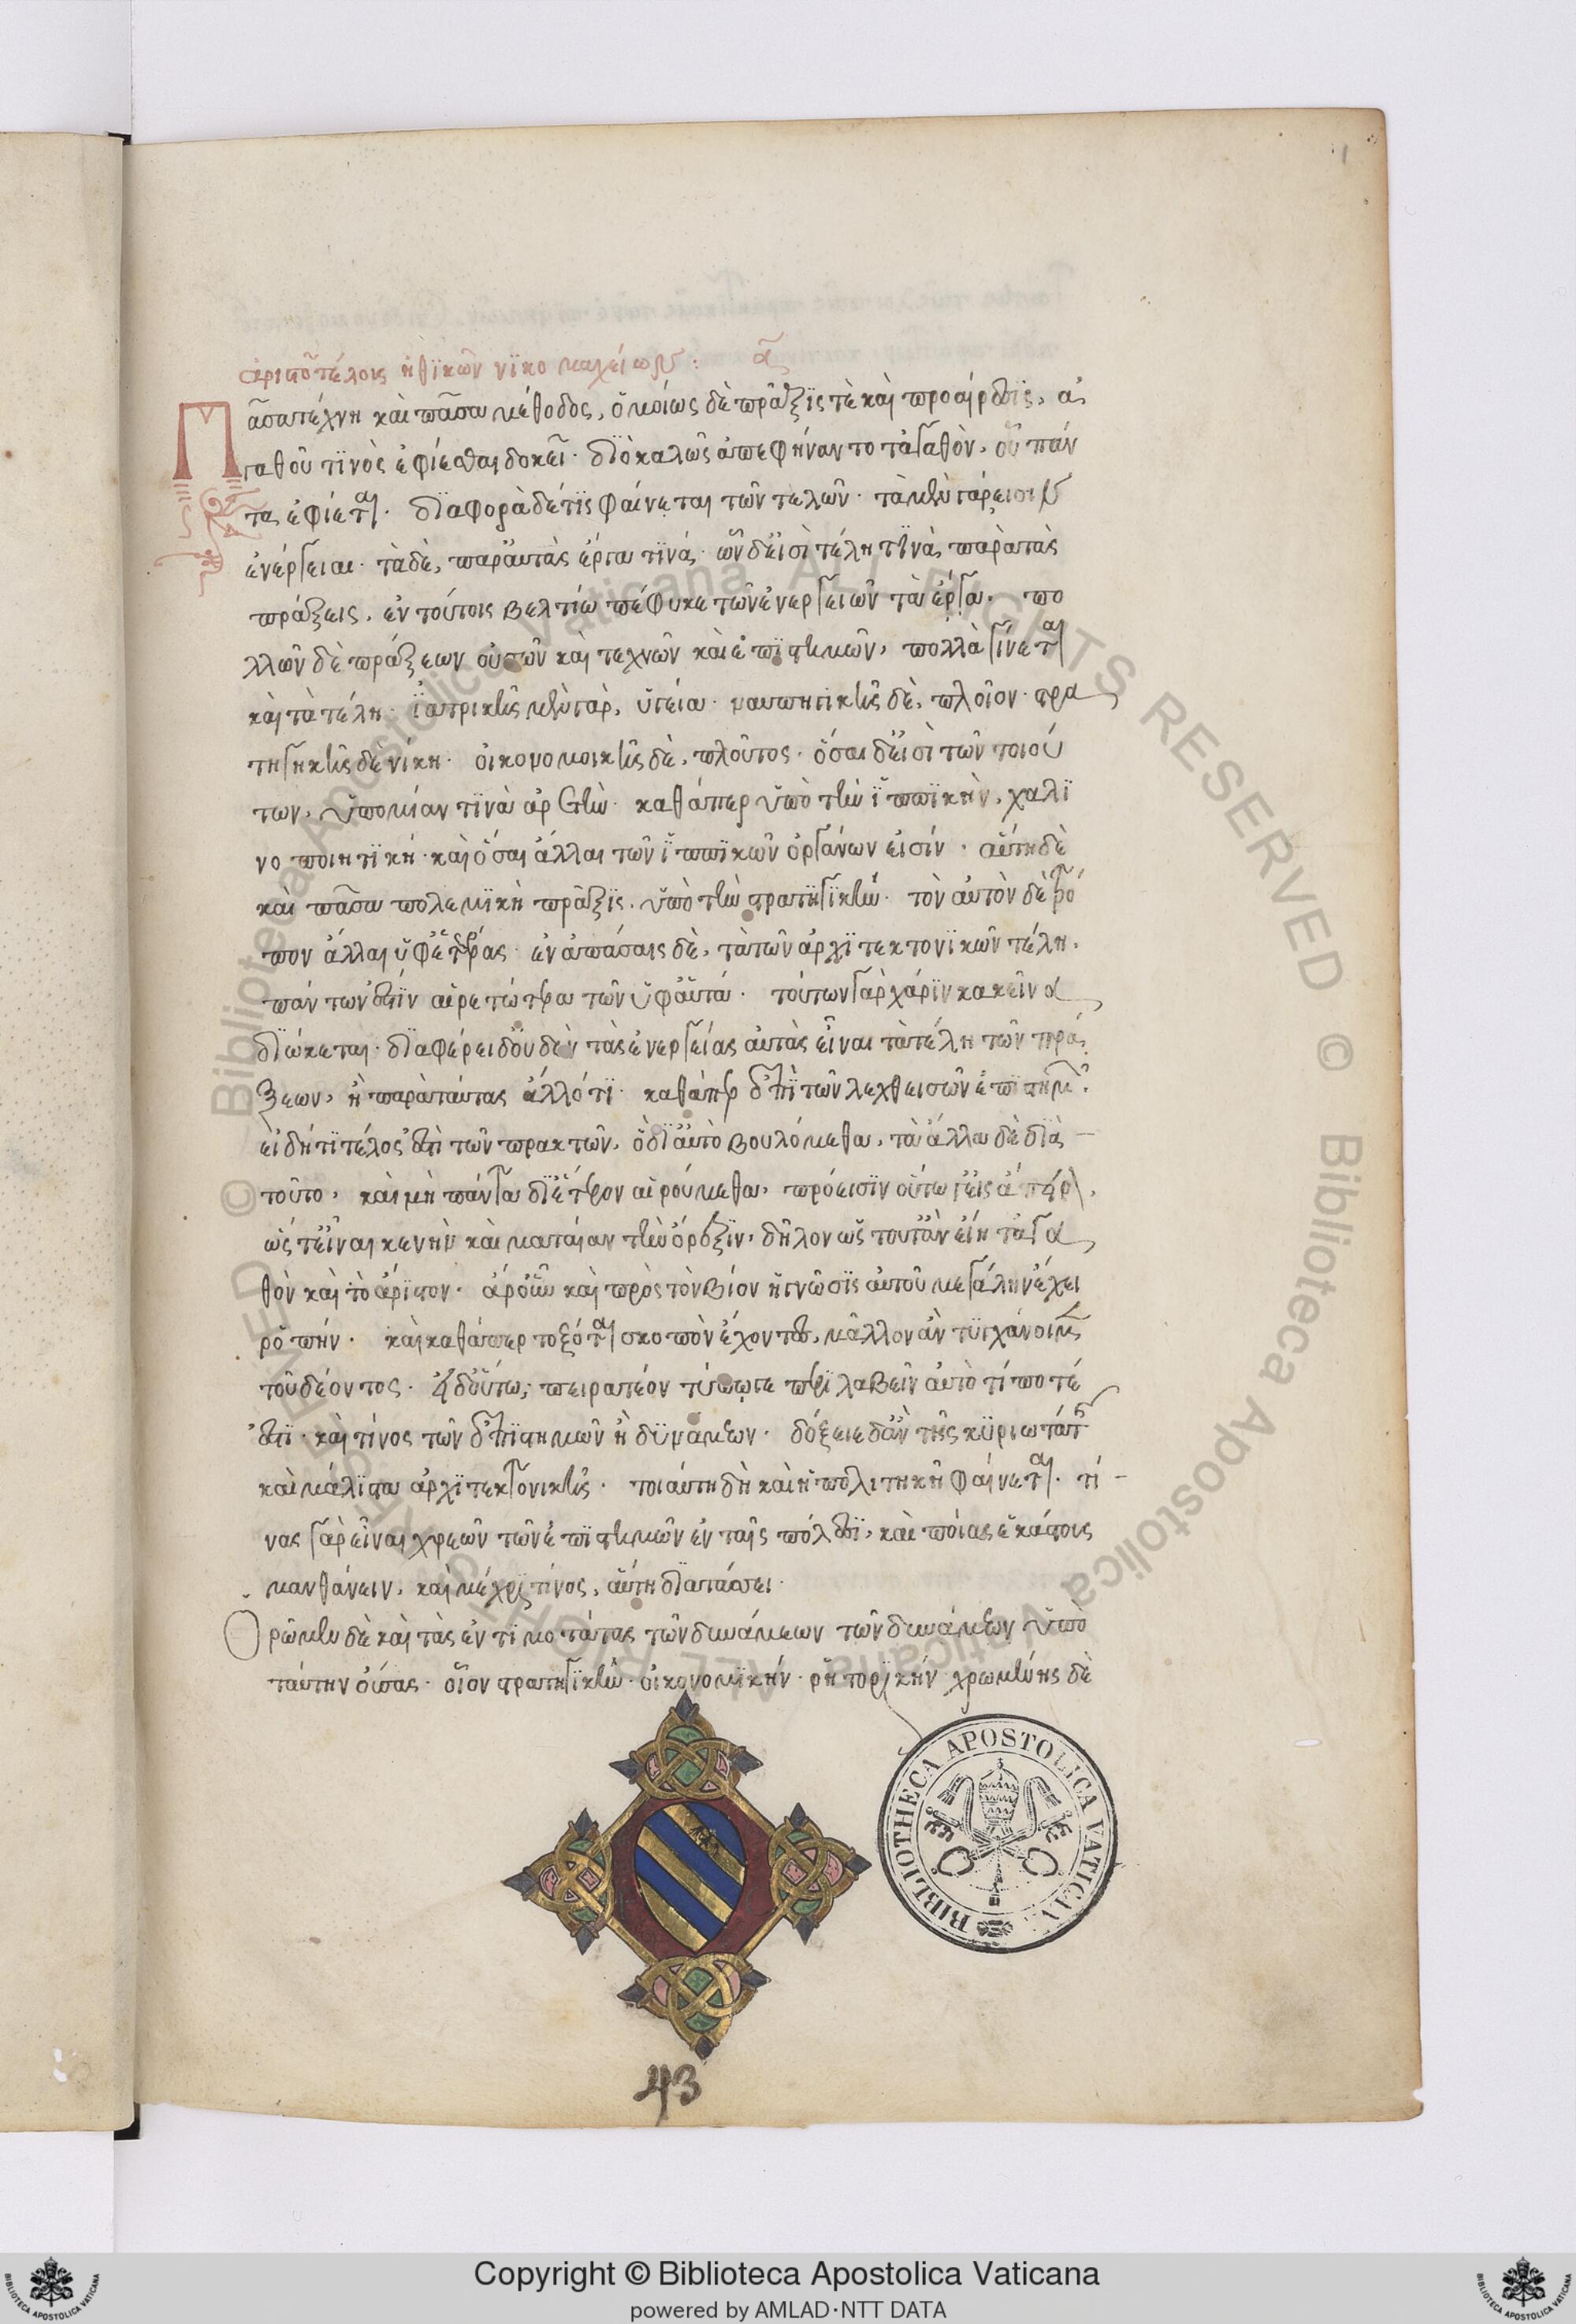 1
ἀριστοτέλους ἠθικῶν νικομαχείων : α
Πᾶσα τέχνη καὶ πᾶσα μέθοδος, ὁμοίως δὲ πρᾶξίς τε καὶ προαίρεσις, ἀ
γαθοῦ τινὸς ἐφίεσθαι δοκεῖ· διὸ καλῶς ἀπεφήναντο τἀγαθὸν, οὗ πάν
τα ἐφίεται· διαφορὰ δέ τις φαίνεται τῶν τελῶν· τὰ μὲν γάρ εἰσιν
ἐνέργειαι· τὰ δὲ, παρ' αὐτὰς ἔργα τινά· ὧν δ' εἰσὶ τέλη τινὰ παρὰ τὰς
πράξεις, ἐν τούτοις βελτίω πέφυκε τῶν ἐνεργειῶν τὰ ἔργα· πο
λλῶν δὲ πράξεων οὐσῶν καὶ τεχνῶν καὶ ἐπιστημῶν, πολλὰ γίνεται
καὶ τὰ τέλη· ἰατρικῆς μὲν γὰρ, ὑγεία· ναυπηγικῆς δὲ, πλοῖον· στρα
τηγηκῆς δὲ νίκη· οἰκονομικῆς δὲ, πλοῦτος· ὅσαι δ' εἰσὶ τῶν τοιού
των, ὑπὸ μίαν τινὰ ἀρετὴν· καθάπερ ὑπὸ τὴν ἱππικὴν, χαλι
νοποιητικὴ· καὶ ὅσαι ἄλλαι τῶν ἱππικῶν ὀργάνων εἰσίν· αὕτη δὲ
καὶ πᾶσα πολεμικὴ πρᾶξις, ὑπὸ τὴν στρατηγικὴν· τὸν αὐτὸν δὲ τρό
πον ἄλλαι ὑφ' ἑτέρας· ἐν ἁπάσαις δὲ, τὰ τῶν ἀρχιτεκτονικῶν τέλη,
πάντων ἐστὶν αἱρετώτερα τῶν ὑφ' αὑτά· τούτων γὰρ χάριν κακεῖνα
διώκεται· διαφέρει δ' οὐδὲν τὰς ἐνεργείας αὐτὰς εἶναι τὰ τέλη τῶν πρά
ξεων, ἢ παρὰ ταύτας ἄλλό τι· καθάπερ ἐπὶ τῶν λεχθεισῶν ἐπιστημῶν·
εἰ δή τι τέλος ἐστὶ τῶν πρακτῶν, ὃ δι' αὑτὸ βουλόμεθα, τὰ ἄλλα δὲ διὰ
τοῦτο, καὶ μὴ πάντα δι' ἕτερον αἱρούμεθα, πρόεισιν οὕτω γ' εἰς ἄπειρον,
ὥς τ' εἶναι κενὴν καὶ ματαίαν τὴν ὄρεξιν, δῆλον ὡς τοῦτ' ἂν εἴη τἀγα
θὸν καὶ τὸ ἄριστον· ἆρ' οὖν καὶ πρὸς τὸν βίον ἡ γνῶσις αὐτοῦ μεγάλην ἔχει
ῥοπήν· καὶ καθάπερ τοξόται σκοπὸν ἔχοντες, μᾶλλον ἂν τυγχάνοιμεν
τοῦ δέοντος· εἰ δ' οὕτω, πειρατέον τύπῳ γε περιλαβεῖν αὐτὸ τί ποτέ
ἐστι· καὶ τίνος τῶν ἐπιστημῶν ἢ δυνάμεων· δόξειε δ' ἂν τῆς κυριωτάτης
καὶ μάλιστα ἀρχιτεκτονικῆς· τοιαύτη δὴ καὶ ἡ πολιτηκὴ φαίνεται· τί
νας γὰρ εἶναι χρεὼν τῶν ἐπιστημῶν ἐν ταῖς πόλεσι, καὶ ποίας ἑκάστους
μανθάνειν, καὶ μέχρι τίνος, αὕτη διατάσσει·
Ὁρῶμεν δὲ καὶ τὰς ἐντιμοτάτας τῶν δυνάμεων τῶν δυνάμεων ὑπὸ
ταύτην οὔσας· οἷον στρατηγικὴν· οἰκονομικήν· ῥητορικήν· χρωμένης δὲ
BIBLIOTHECA APOSTOLICA VATICANA
43
Copyright © Biblioteca Apostolica Vaticana
powered by AMLAD·NTT DATA